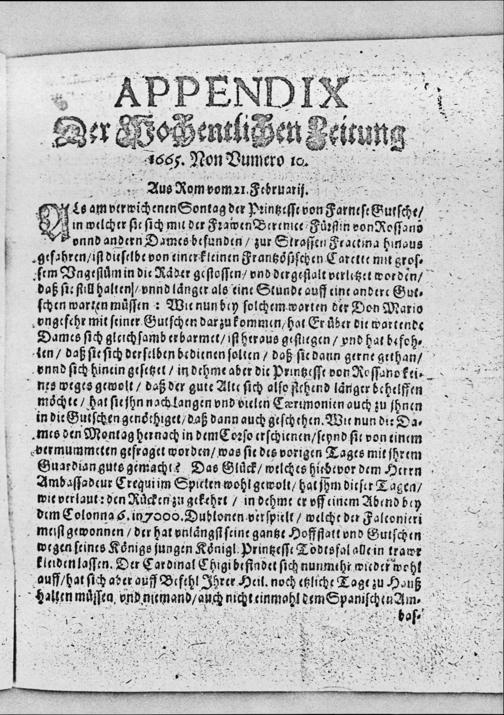 APPENDIX
Der Wochentlichen Zeitung
1665. Non Numero 10.
Aus Rom vom 21. Februarij.
ALs am verwichenen Sontag der Printzesse von Farnese Gutsche/
in welcher sie sich mit der Frawen Berenice Fürstin von Rossano
vnnd andern Dames befunden / zur Strassen Fractina hinaus
gefahren/ ist dieselbe von einer kleinen Frantzösischen Carette mit gros-
sem Vngestüm in die Räder gestossen/ vnd dergestalt verletzet worden/
daß sie still halten/ vnnd länger als eine Stunde auff eine andere Gut-
schen warten müssen : Wie nun bey solchem warten der Don Mario
vngefehr mit seiner Gutschen darzu kommen/ hat Er über die wartende
Dames sich gleichsam erbarmet/ ist heraus gestiegen / vnd hat befoh-
len / daß sie sich derselben bedienen solten / daß sie dann gerne gethan/
vnnd sich hinein gesetzet / in dehme aber die Printzesse von Rossano kei-
nes weges gewolt / daß der gute Alte sich also stehend länger behelffen
möchte / hat sie ihn nach langen vnd vielen Cærimonien auch zu ihnen
in die Gutschen genöthiget/ daß dann auch geschehen. Wie nun die Da-
mes den Montag hernach in dem Corso erschienen/ seynd sie von einem
vermummeten gefraget worden/ was sie des vorigen Tages mit ihrem
Guardian guts gemacht? Das Glück/ welches hiebevor dem Herrn
Ambassadeur Crequi im Spielen wohl gewolt / hat ihm dieser Tagen/
wie verlaut: den Rücken zu gekehrt / in dehme er vff einem Abend bey
dem Colonna 6. in 7000. Dublonen verspielt / welche der Falconieri
meist gewonnen / der hat vnlängst seine gantze Hoffstatt vnd Gutschen
wegen seines Königs jungen Königl. Printzesse Todtsfal alle in trawr
kleiden lassen. Der Cardinal Chigi befindet sich nunmehr wieder wohl
auff/ hat sich aber auff Befehl Ihrer Heil. noch etzliche Tage zu Hauß
halten müssen, vnd niemand/ auch nicht einmahl dem Spanischen Am-
bas-